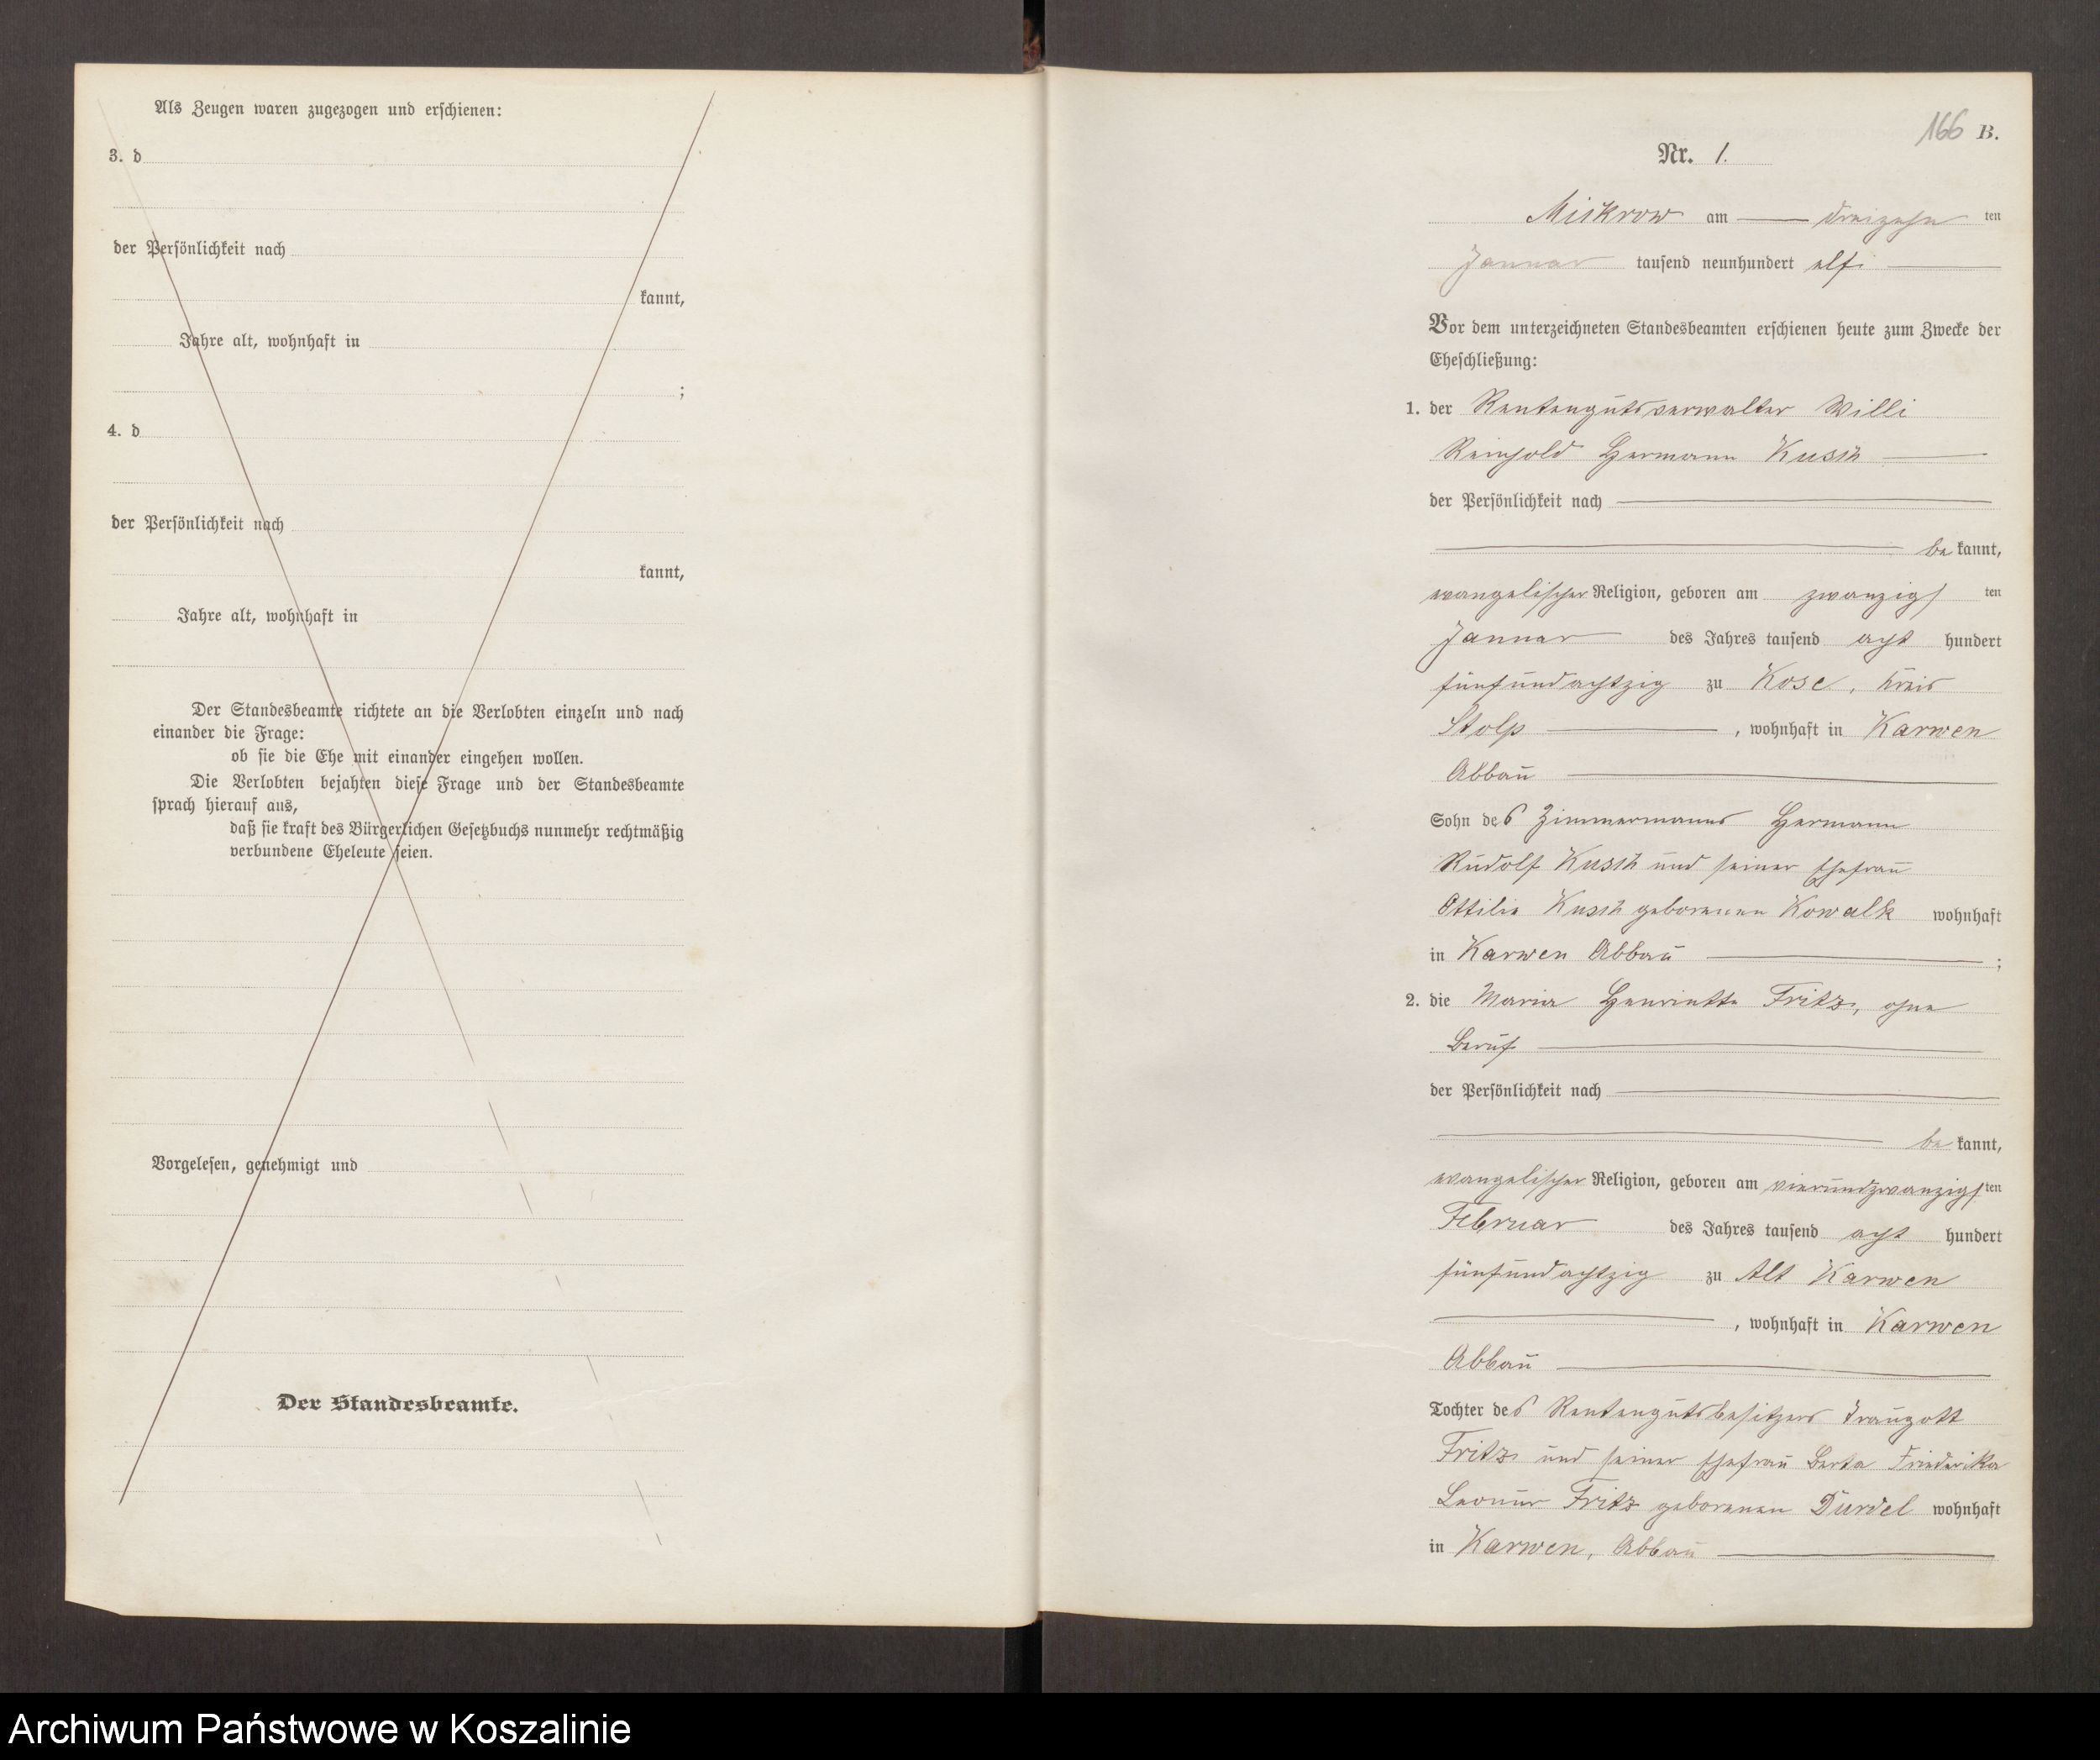 Als Zeugen waren zugezogen und erschienen:
3. d
der Persönlichkeit nach
kannt,
Jahre alt, wohnhaft in
;
4. d
der Persönlichkeit nach
kannt,
Jahre alt, wohnhaft in
Der Standesbeamte richtete an die Verlobten einzeln und nach
einander die Frage:
ob sie die Ehe mit einander eingehen wollen.
Die Verlobten bejahten diese Frage und der Standesbeamte
sprach hierauf aus,
daß sie kraft des Bürgerlichen Gesetzbuchs nunmehr rechtmäßig
verbundene Eheleute seien.
Vorgelesen, genehmigt und
Der Standesbeamte.
166 B.
Nr. 1.
Mickrow am dreizehn ten
Januar tausend neunhundert elf
Vor dem unterzeichneten Standesbeamten erschienen heute zum Zwecke der
Eheschließung:
1. der Rentengutsverwalter Willi
Reinhold Hermann Kusch
der Persönlichkeit nach
be kannt,
evangelischer Religion, geboren am zwanzigs ten
Januar des Jahres tausend acht hundert
fünfundachtzig zu Kose, Kreis
Stolp , wohnhaft in Karwen
Abbau
Sohn des Zimmermanns Hermann
Rudolf Kusch und seiner Ehefrau
Ottilie Kusch geborenen Kowalk wohnhaft
in Karwen Abbau ;
2. die Maria Henriette Fritz, ohne
Beruf
der Persönlichkeit nach
be kannt,
evangelischer Religion, geboren am vierundzwanzigs ten
Februar des Jahres tausend acht hundert
fünfundachtzig zu Alt Karwen
, wohnhaft in Karwen
Abbau
Tochter des Rentengutsbesitzers Traugott
Fritz und seiner Ehefrau Berta Friederike
Fritz geborenen Durdel wohnhaft
in Karwen, Abbau
Archiwum Państwowe w Koszalinie